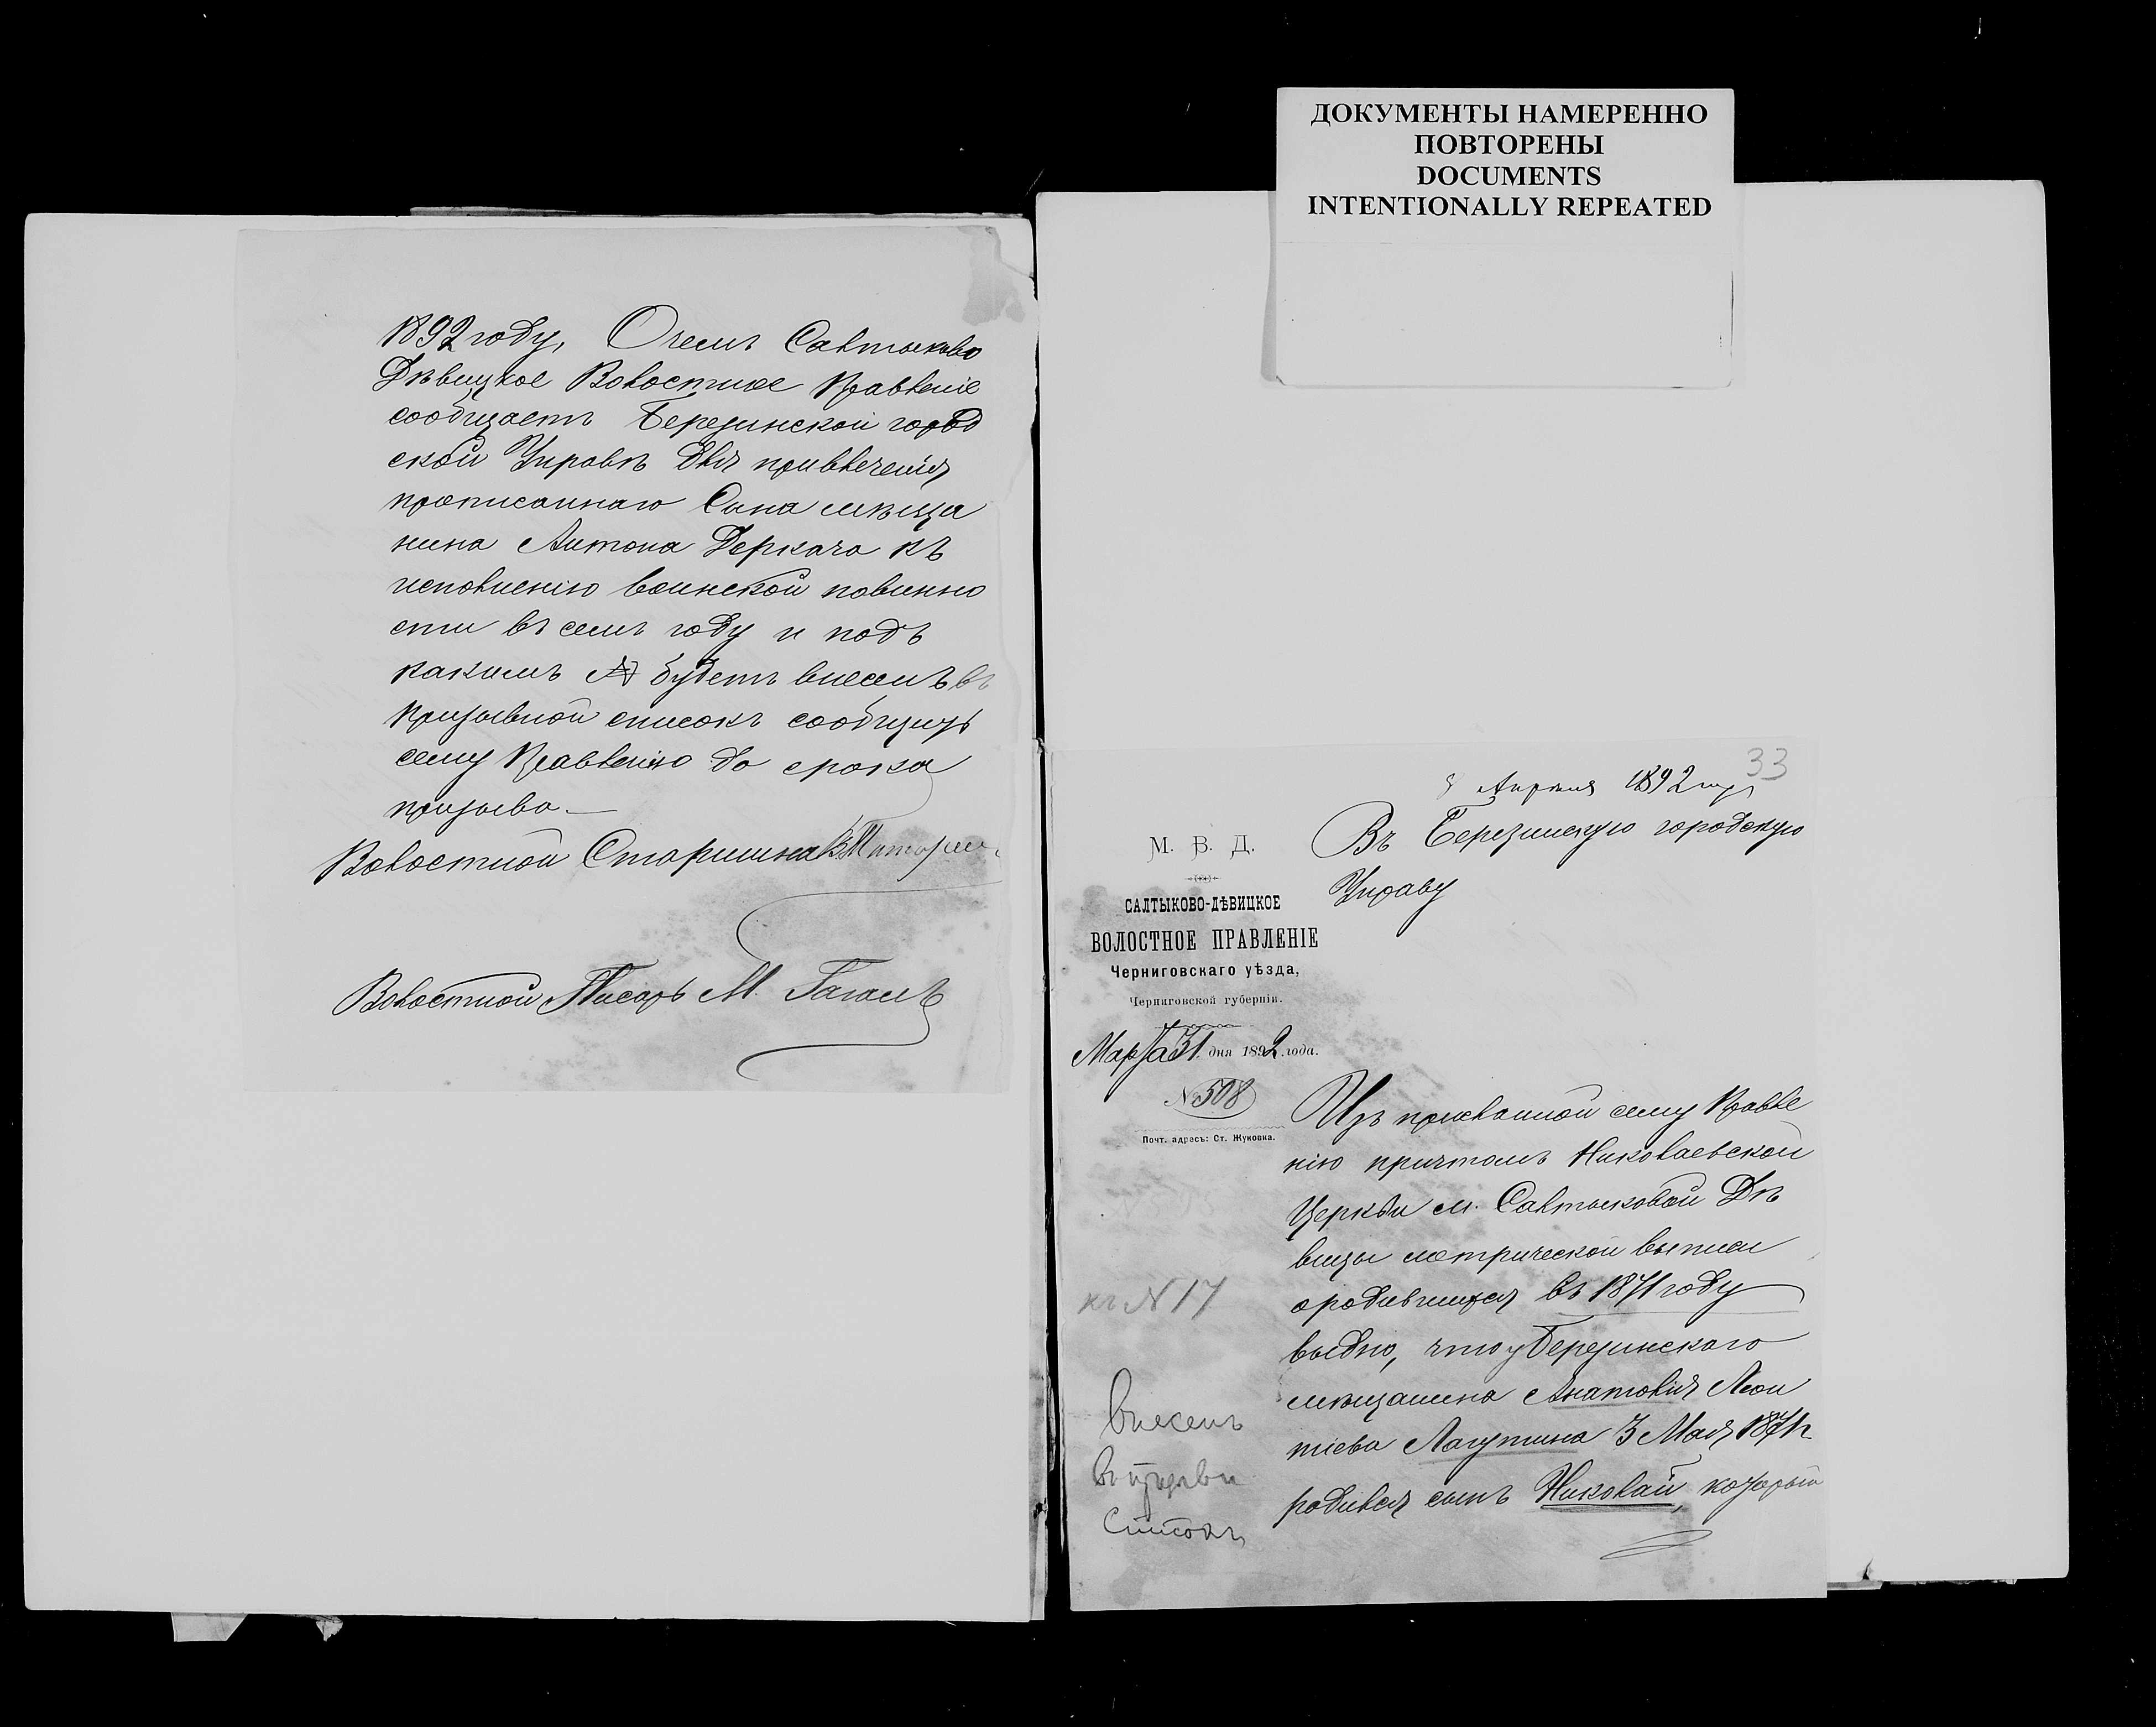 1892 году, О чемъ Салтыково
Дѣвицкое Волостное Правленіе
сообщаетъ Березинской город
ской Управѣ для привлеченія
прописаннаго Сына мѣща
нина Антона Деркача къ
исполненію воинской повинно
сти въ семъ году и подъ
какимъ № будетъ внесенъ въ
призывной списокъ сообщить
сему Правленію до срока
призыва.—
Волостной Старшина
Волостной Писарь М.
ДОКУМЕНТЫ НАМЕРЕННО
ПОВТОРЕНЫ
DOCUMENTS
INTENTIONALLY REPEATED
33
Апрѣля 1892 года
М. В. Д.
САЛТЫКОВО-ДѢВИЦКОЕ
ВОЛОСТНОЕ ПРАВЛЕНІЕ
Черниговскаго уѣзда,
Черниговской губерніи.
Марта 31 дня 1892 года.
№ 508
Почт. адресъ: Ст. Жуковка.
Въ Березинскую городскую
Управу
Изъ присланной сему Правле
нію причтомъ Николаевской
Церкви м. Салтыковой Дѣ
вицы метрической выписи
о родившихся въ 1871 году
видно, что у Березинскаго
мѣщанина Анатолія Леон
тіева Лагутина 3 Мая 1871 г.
родился сынъ Николай, который
къ № 17
Внесенъ
въ
Списокъ